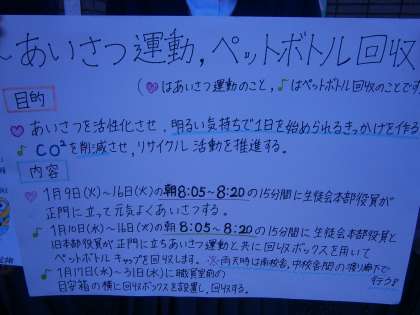 ～あいさつ運動,ペットボトル回収
(♡はあいさつ運動のこと,♪はペットボトル回収のことです
目的
♡ あいさつを活性化させ、明るい気持ちで1日を始められるきっかけを作る
♪ CO²を削減させ、リサイクル活動を推進する。
内容
♡ 1月9日(火)～16日(火)の朝8:05～8:20の15分間に生徒会本部役員が
正門に立って元気よくあいさつする。
♪ 1月10日(水)～16日(火)の朝8:05～8:20の15分間に生徒会本部役員と
旧本部役員が正門に立ちあいさつ運動と共に回収ボックスを用いて
ペットボトルキャップを回収します。※雨天時は南校舎,中校舎間の渡り廊下で
行う
♪ 1月17日(水)～31日(水)に職員室前の
目安箱の横に回収ボックスを設置し、回収する。